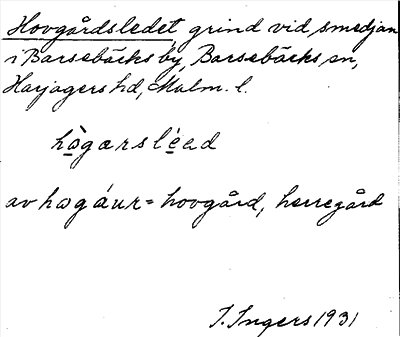 Hovgårdsledet, grind vid smedjan
i Barsebäcks by, Barsebäcks sn,
Harjagers hd, Malm. l.
hògarsléad
av hogáur = hovgård, herregård
I. Ingers 1931